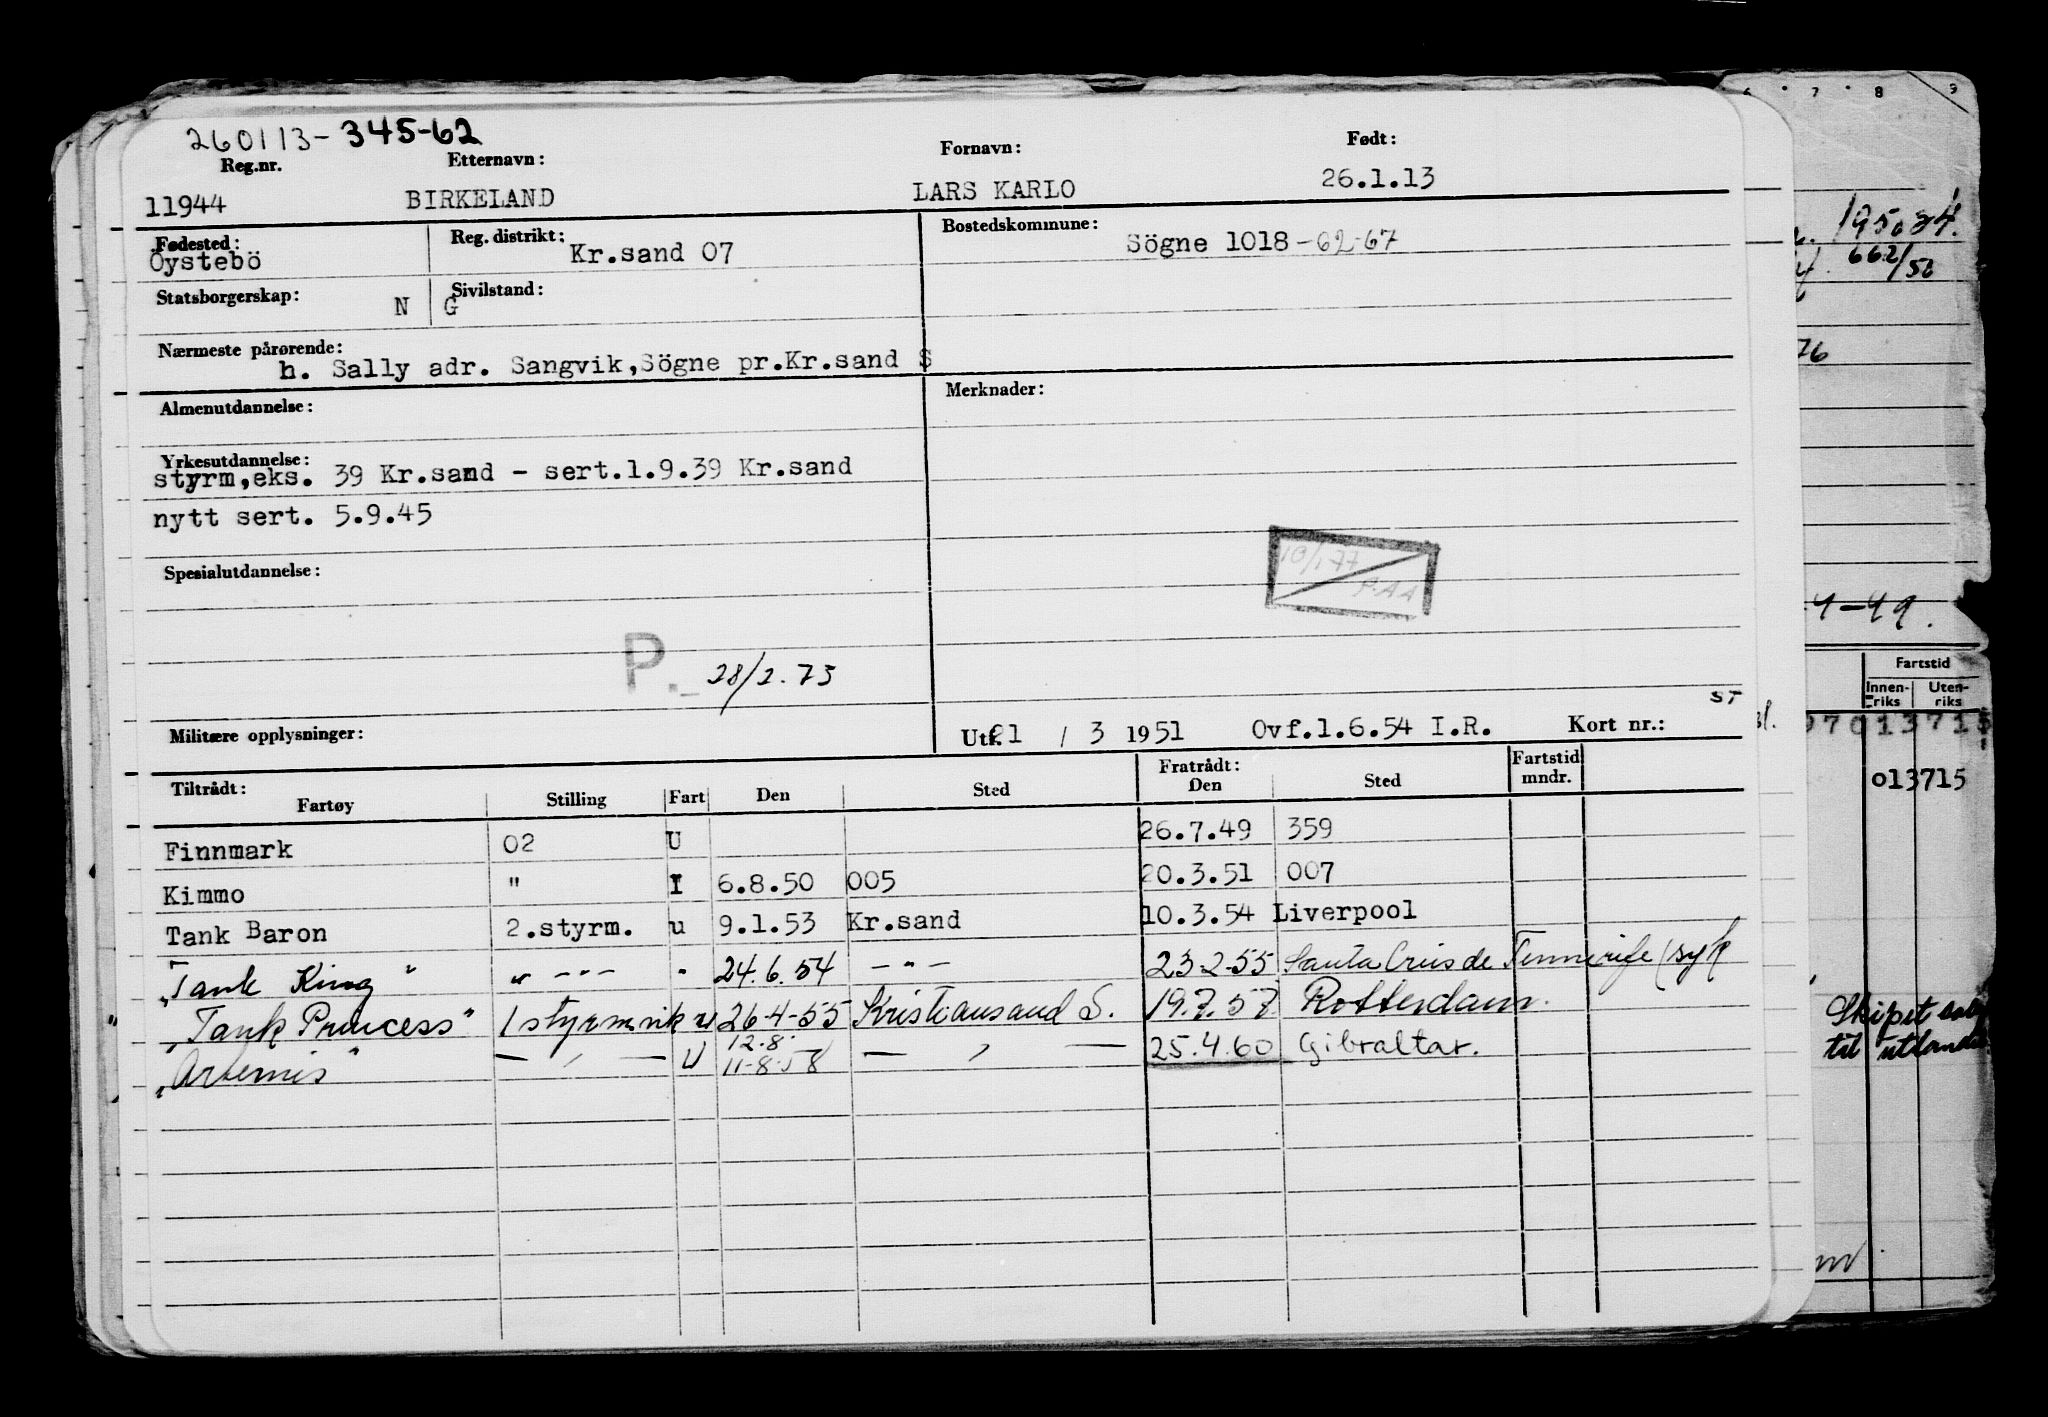 260113-345-62
Reg.nr. Etternavn: Fornavn: Født:
11944 BIRKELAND LARS KARLO 26.1.13
Fødested: Reg. distrikt: Bostedskommune:
Öystebö Kr.sand 07 Sögne 1018-62-67
Statsborgerskap: N Sivilstand: G
Nærmeste pårørende:
h. Sally adr. Sangvik,Sögne pr.Kr.sand S
Almenutdannelse: Merknader:
Yrkesutdannelse:
styrm,eks. 39 Kr.sand - sert.1.9.39 Kr.sand
nytt sert. 5.9.45
10/1 77
P.AA
Spesialutdannelse:
P. 28/2.73
ST
Militære opplysninger: Utf. 21 / 3 1951 Ovf.1.6.54 I.R. Kort nr.:
Tiltrådt: Fratrådt: Fartstid
Fartøy Stilling Fart Den Sted Den Sted mndr.
Finnmark 02 U 26.7.49 359
Kimmo " I 6.8.50 005 20.3.51 007
Tank Baron 2.styrm. u 9.1.53 Kr.sand 10.3.54 Liverpool
"Tank King" " --- " 24.6.54 -"- 23-2-55 Santa Cruis de Tennerife (syk
"Tank Princess" 1 styrm vik u 26-4-55 Kristiansand S. 19.7.57 Rotterdam.
12.8.
"Artemis" — " — U 11-8-58 — " — 25.4.60 Gibraltar.
6 7 8 9
195034.
662/50
76
4-49.
Fartstid
Innen-riks Uten-riks
97013715
013715
Skipet
til